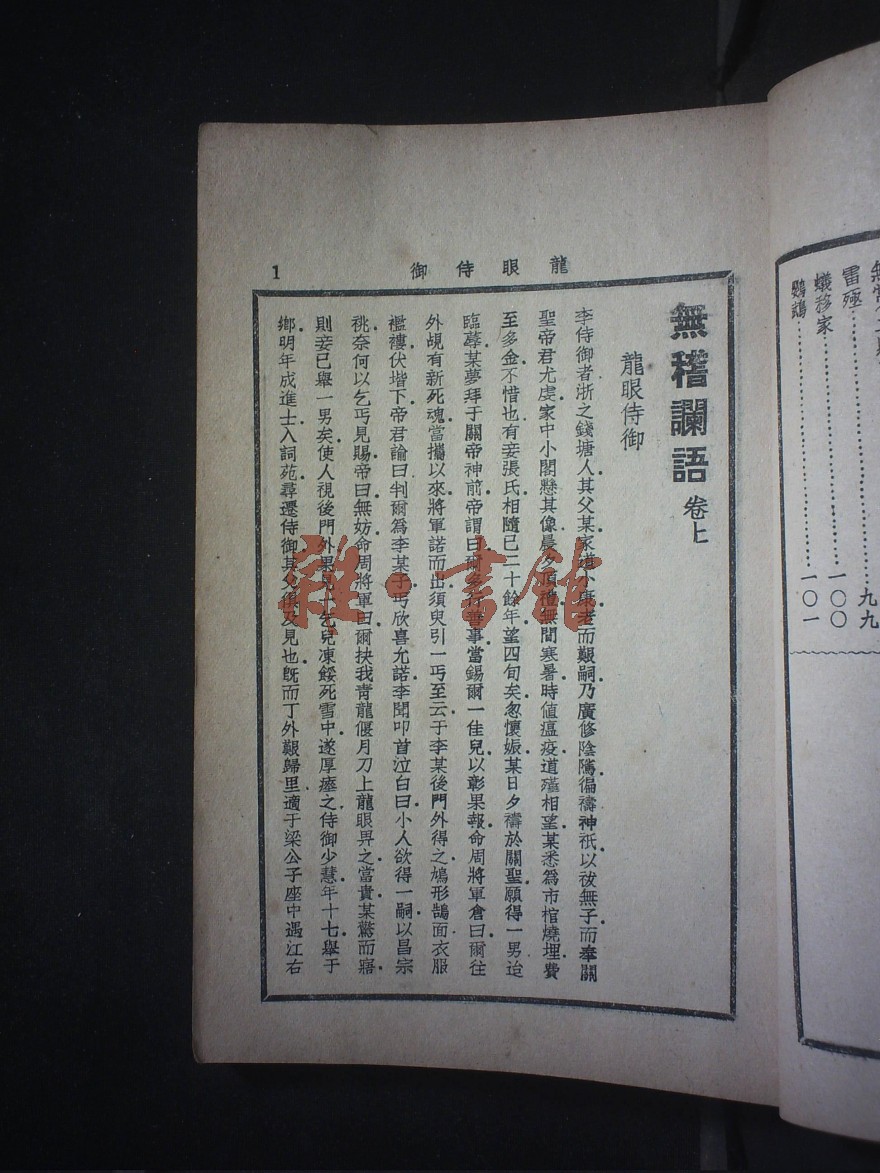 無…
雷殛……九九
蟻移家……一〇〇
鸚鵡……一〇一
龍眼侍御
1
無稽讕語 卷上
龍眼侍御
李侍御者浙之錢塘人其父某家道小康老而艱嗣乃廣修陰隲徧禱神祇以祓無子而奉關
聖帝君尤虔家中小閣懸其像晨夕頂禮無間寒暑時值瘟疫道殣相望某悉為市棺燒埋費
至多金不惜也有妾張氏相隨已二十餘年望四旬矣忽懷娠某日夕禱於關聖願得一男迨
臨蓐某夢拜于關帝神前帝謂曰爾多行善事當錫爾一佳兒以彰果報命周將軍倉曰爾往
外覘有新死魂當攜以來將軍諾而出須臾引一丐至云于李某後門外得之鳩形鵠面衣服
襤褸伏堦下帝君諭曰判爾為李某子丐欣喜允諾李聞叩首泣白曰小人欲得一嗣以昌宗
祧奈何以乞丐見賜帝曰無妨命周將軍曰爾抉我青龍偃月刀上龍眼畀之當貴某驚而寤
則妾已舉一男矣使人視後門外果見一乞兒凍餒死雪中遂厚瘞之侍御少慧年十七舉于
鄉明年成進士入詞苑尋遷侍御其父俱及見也旣而丁外艱歸里適于梁公子座中遇江右
雜·書館